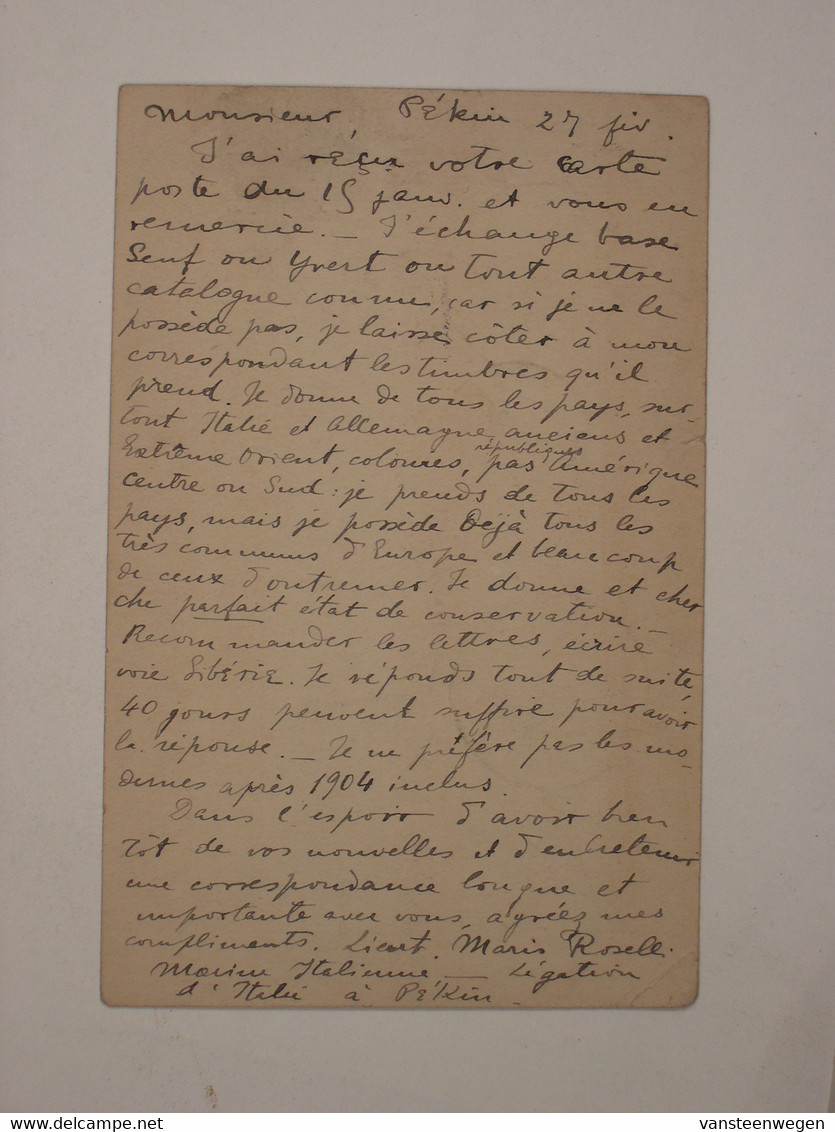 Monsieur, Pékin 27 fév.
J'ai reçu votre carte
poste du 15 janv. et vous en
remercie. _ J'échange base
Senf ou Yvert ou tout autre
catalogue connu, car si je ne le
possède pas, je laisse côter à mon
correspondant les timbres qu'il
prend. Je donne de tous les pays, sur-
tout Italie et Allemagne, anciens et
républiques
Extrême Orient, colonies, pas Amérique
Centre ou Sud: je prends de tous les
pays, mais je possède Déjà tous les
très communs d'Europe et beaucoup
de ceux d'outremer. Je donne et cher
che parfait état de conservation. _
Recommander les lettres, écrire
voie Sibérie. Je réponds tout de suite,
40 jours peuvent suffire pour avoir
la réponse. _ Je ne préfère pas les mo-
dernes après 1904 inclus.
Dans l'espoir d'avoir bien
tôt de vos nouvelles et d'entretenir
une correspondance longue et
importante avec vous, agréez mes
compliments. Lieut. Maris Roselli
Marine Italienne _ Légation
d'Italie à Pékin _
DELCAMPE.NET
vansteenwegen